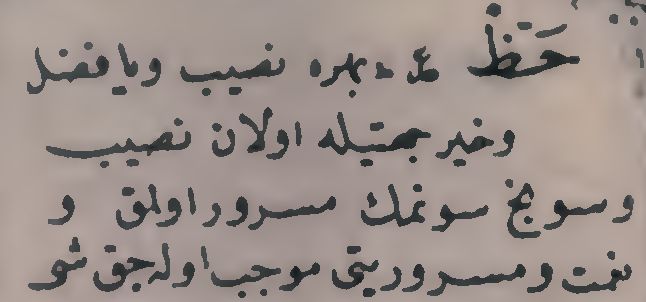 حَظّ ع بهره نصيب ويا فضل
وخير جهتيله اولان نصيب
وسونج سونمك مسرور اولمق و
نعمت ومسروريتى موجب اوله جق شو